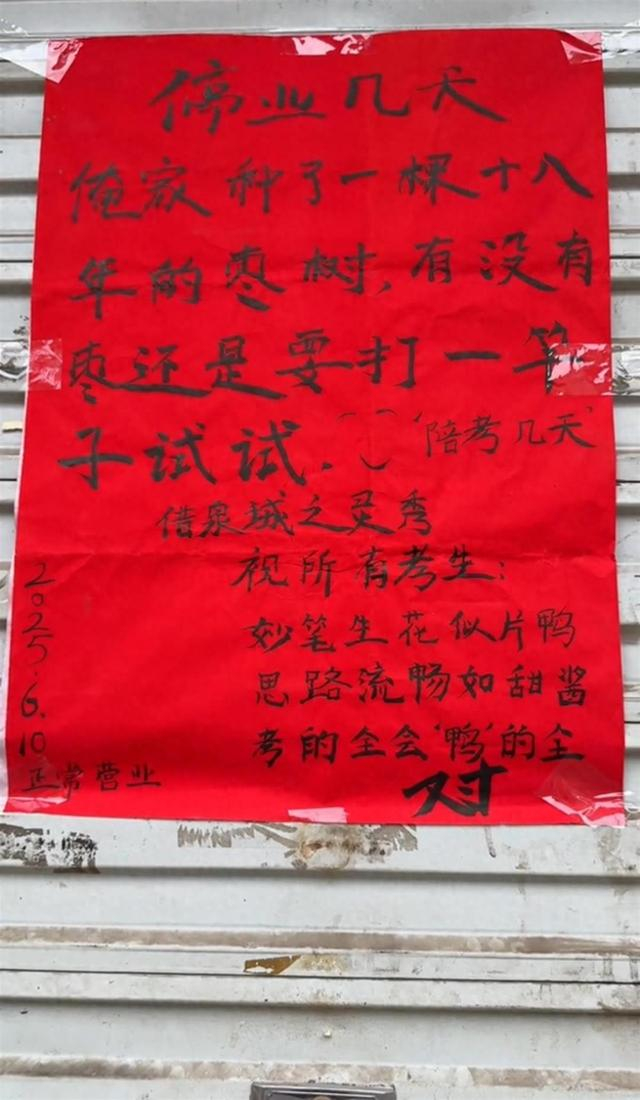 停业几天
俺家种了一棵十八
年的枣树,有没有
枣还是要打一竿
子试试.
'陪考几天'
借泉城之灵秀
祝所有考生:
妙笔生花似片鸭
思路流畅如甜酱
考的全会'鸭'的全
对
2025.6.10
正常营业